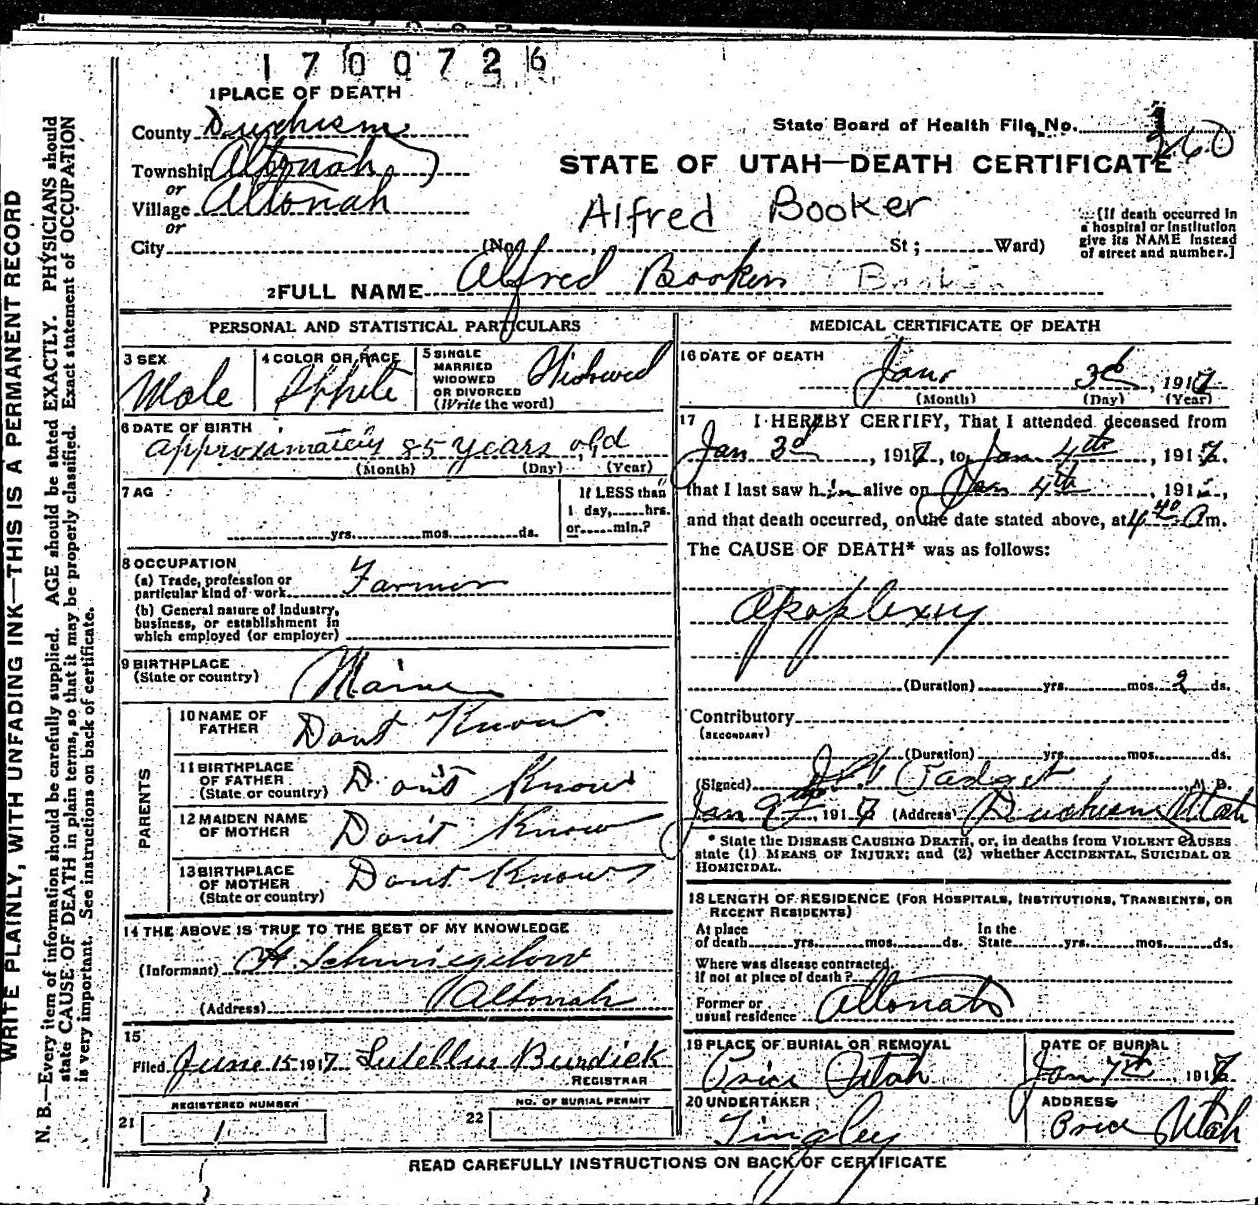 1700726
1 PLACE OF DEATH
County Duchesne
State Board of Health File No. 1
260
Township Altonah
or
Village Altonah
or
STATE OF UTAH—DEATH CERTIFICATE
Alfred Booker
City (No. , St ; Ward)
[If death occurred in
a hospital or institution
give its NAME instead
of street and number.]
2 FULL NAME Alfred Booker
PERSONAL AND STATISTICAL PARTICULARS
3 SEX
Male
4 COLOR OR RACE
White
5 SINGLE
MARRIED
WIDOWED
OR DIVORCED
(Write the word)
Widowed
6 DATE OF BIRTH
approximately 85 years old
(Month) (Day) (Year)
7 AG
yrs. mos. ds.
If LESS than
1 day, hrs.
or min.?
8 OCCUPATION
(a) Trade, profession or
particular kind of work Farmer
(b) General nature of industry,
business, or establishment in
which employed (or employer)
9 BIRTHPLACE
(State or country) Maine
PARENTS
10 NAME OF
FATHER Dont Know
11 BIRTHPLACE
OF FATHER
(State or country) Don't Know
12 MAIDEN NAME
OF MOTHER Don't Know
13 BIRTHPLACE
OF MOTHER
(State or country) Dont Know
14 THE ABOVE IS TRUE TO THE BEST OF MY KNOWLEDGE
(Informant) H. Schmiegelow
(Address) Altonah
15
Filed June 15 1917 Lutellus Burdick
REGISTRAR
21 REGISTERED NUMBER
1
22 NO. OF BURIAL PERMIT
MEDICAL CERTIFICATE OF DEATH
16 DATE OF DEATH
Jan. 3d, 1917
(Month) (Day) (Year)
17 I HEREBY CERTIFY, That I attended deceased from
Jan 3d, 1917, to Jan 4th, 1917.
that I last saw him alive on Jan 4th, 191 ,
and that death occurred, on the date stated above, at 4 40 A m.
The CAUSE OF DEATH* was as follows:
Apoplexy
(Duration) yrs. mos. 2 ds.
Contributory
(SECONDARY)
(Duration) yrs. mos. ds.
(Signed) M. D.
Jan 9th, 1917 (Address) Duchesne Utah
* State the DISEASE CAUSING DEATH, or, in deaths from VIOLENT CAUSES
state (1) MEANS OF INJURY; and (2) whether ACCIDENTAL, SUICIDAL OR
HOMICIDAL.
18 LENGTH OF RESIDENCE (FOR HOSPITALS, INSTITUTIONS, TRANSIENTS, OR
RECENT RESIDENTS)
At place
of death yrs. mos. ds.
In the
State yrs. mos. ds.
Where was disease contracted.
If not at place of death?
Former or
usual residence Altonah
19 PLACE OF BURIAL OR REMOVAL
Price Utah
DATE OF BURIAL
Jan 7th, 1917
20 UNDERTAKER
Tingley
ADDRESS
Price Utah
READ CAREFULLY INSTRUCTIONS ON BACK OF CERTIFICATE
WRITE PLAINLY, WITH UNFADING INK—THIS IS A PERMANENT RECORD
N. B.—Every item of information should be carefully supplied. AGE should be stated EXACTLY. PHYSICIANS should
state CAUSE OF DEATH in plain terms, so that it may be properly classified. Exact statement of OCCUPATION
is very important. See instructions on back of certificate.